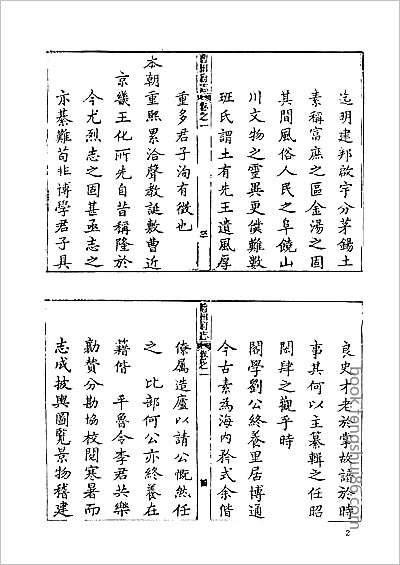 迨明建邦啟宇分茅錫土
素稱富庶之區金湯之固
其間風俗人民之阜饒山
川文物之靈異更僕難數
班氏謂土有先王遺風厚
曹州府志 卷之一
重多君子洵有徵也
本朝重熙累洽聲教誕敷曹近
京畿王化所先自昔稱隆於
今尤烈志之固甚亟志之
亦綦難苟非博學君子具
良史才老於掌故諳於時
事其何以主纂輯之任昭
閎肆之觀乎時
閣學劉公終養里居博通
今古素為海內矜式余偕
曹州府志 卷之一
僚屬造廬以請公慨然任
之 比部何公亦終養在
籍偕 平魯令李君共樂
勷贊分勘恊校閱寒暑而
志成披輿圖覽景物稽建
2